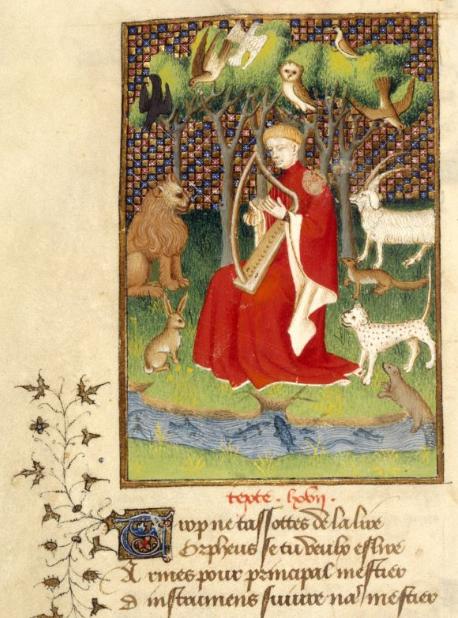 texte . lxvij .
Trop ne tassottes de la lire
Orpheus se tu veulx eslire
Armes pour principal mestier
D instrumens suivre nas mestier